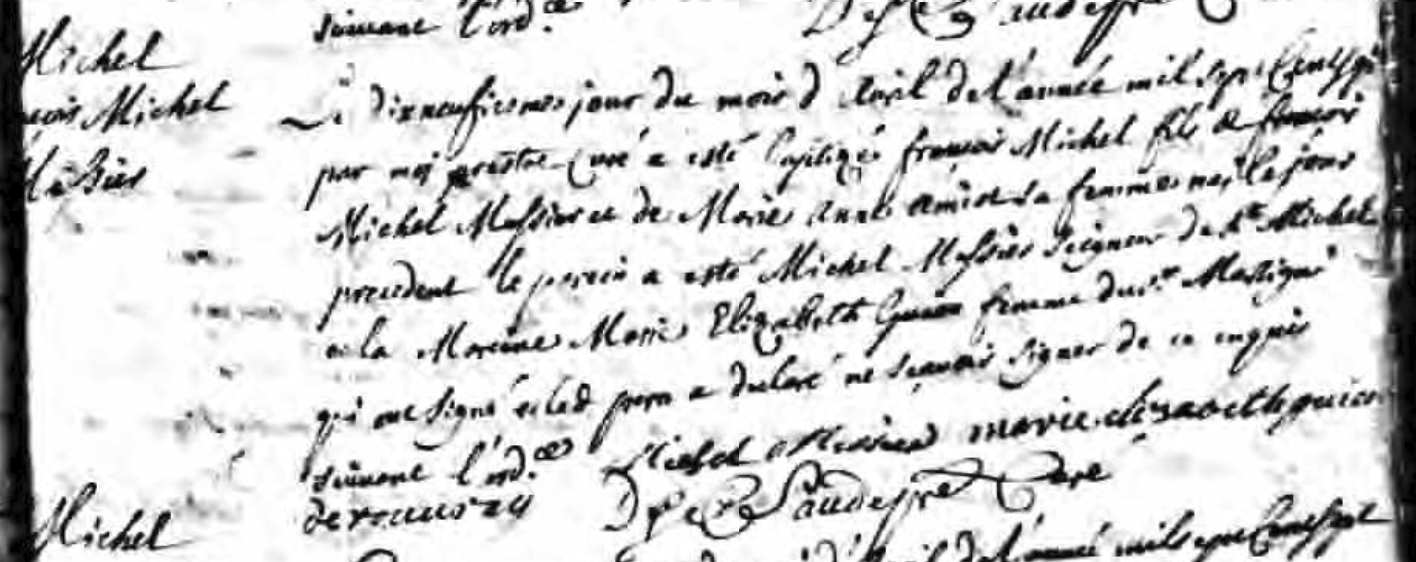 suivant l'ord.ce
Michel
Michel
Le dixneufiesme jour du mois d Avril de l'année mil sept Cent sept
par moy prestre Curé a esté baptizé françois Michel fils de françois
Michel Messier et de Marie Anne Amiot sa femme nay le jour
precedent le perein a esté Michel Messier Seigneur de St Michel
et la Mareine Marie Elizabeth femme du sr Martigni
qui ont signé et led pere a declaré ne sçavoir signer de ce enquis
suivant l'ord.ce Michel Messier marie elizabeth guion
Curé
Michel
Avril de l'année mil sept Cent sept